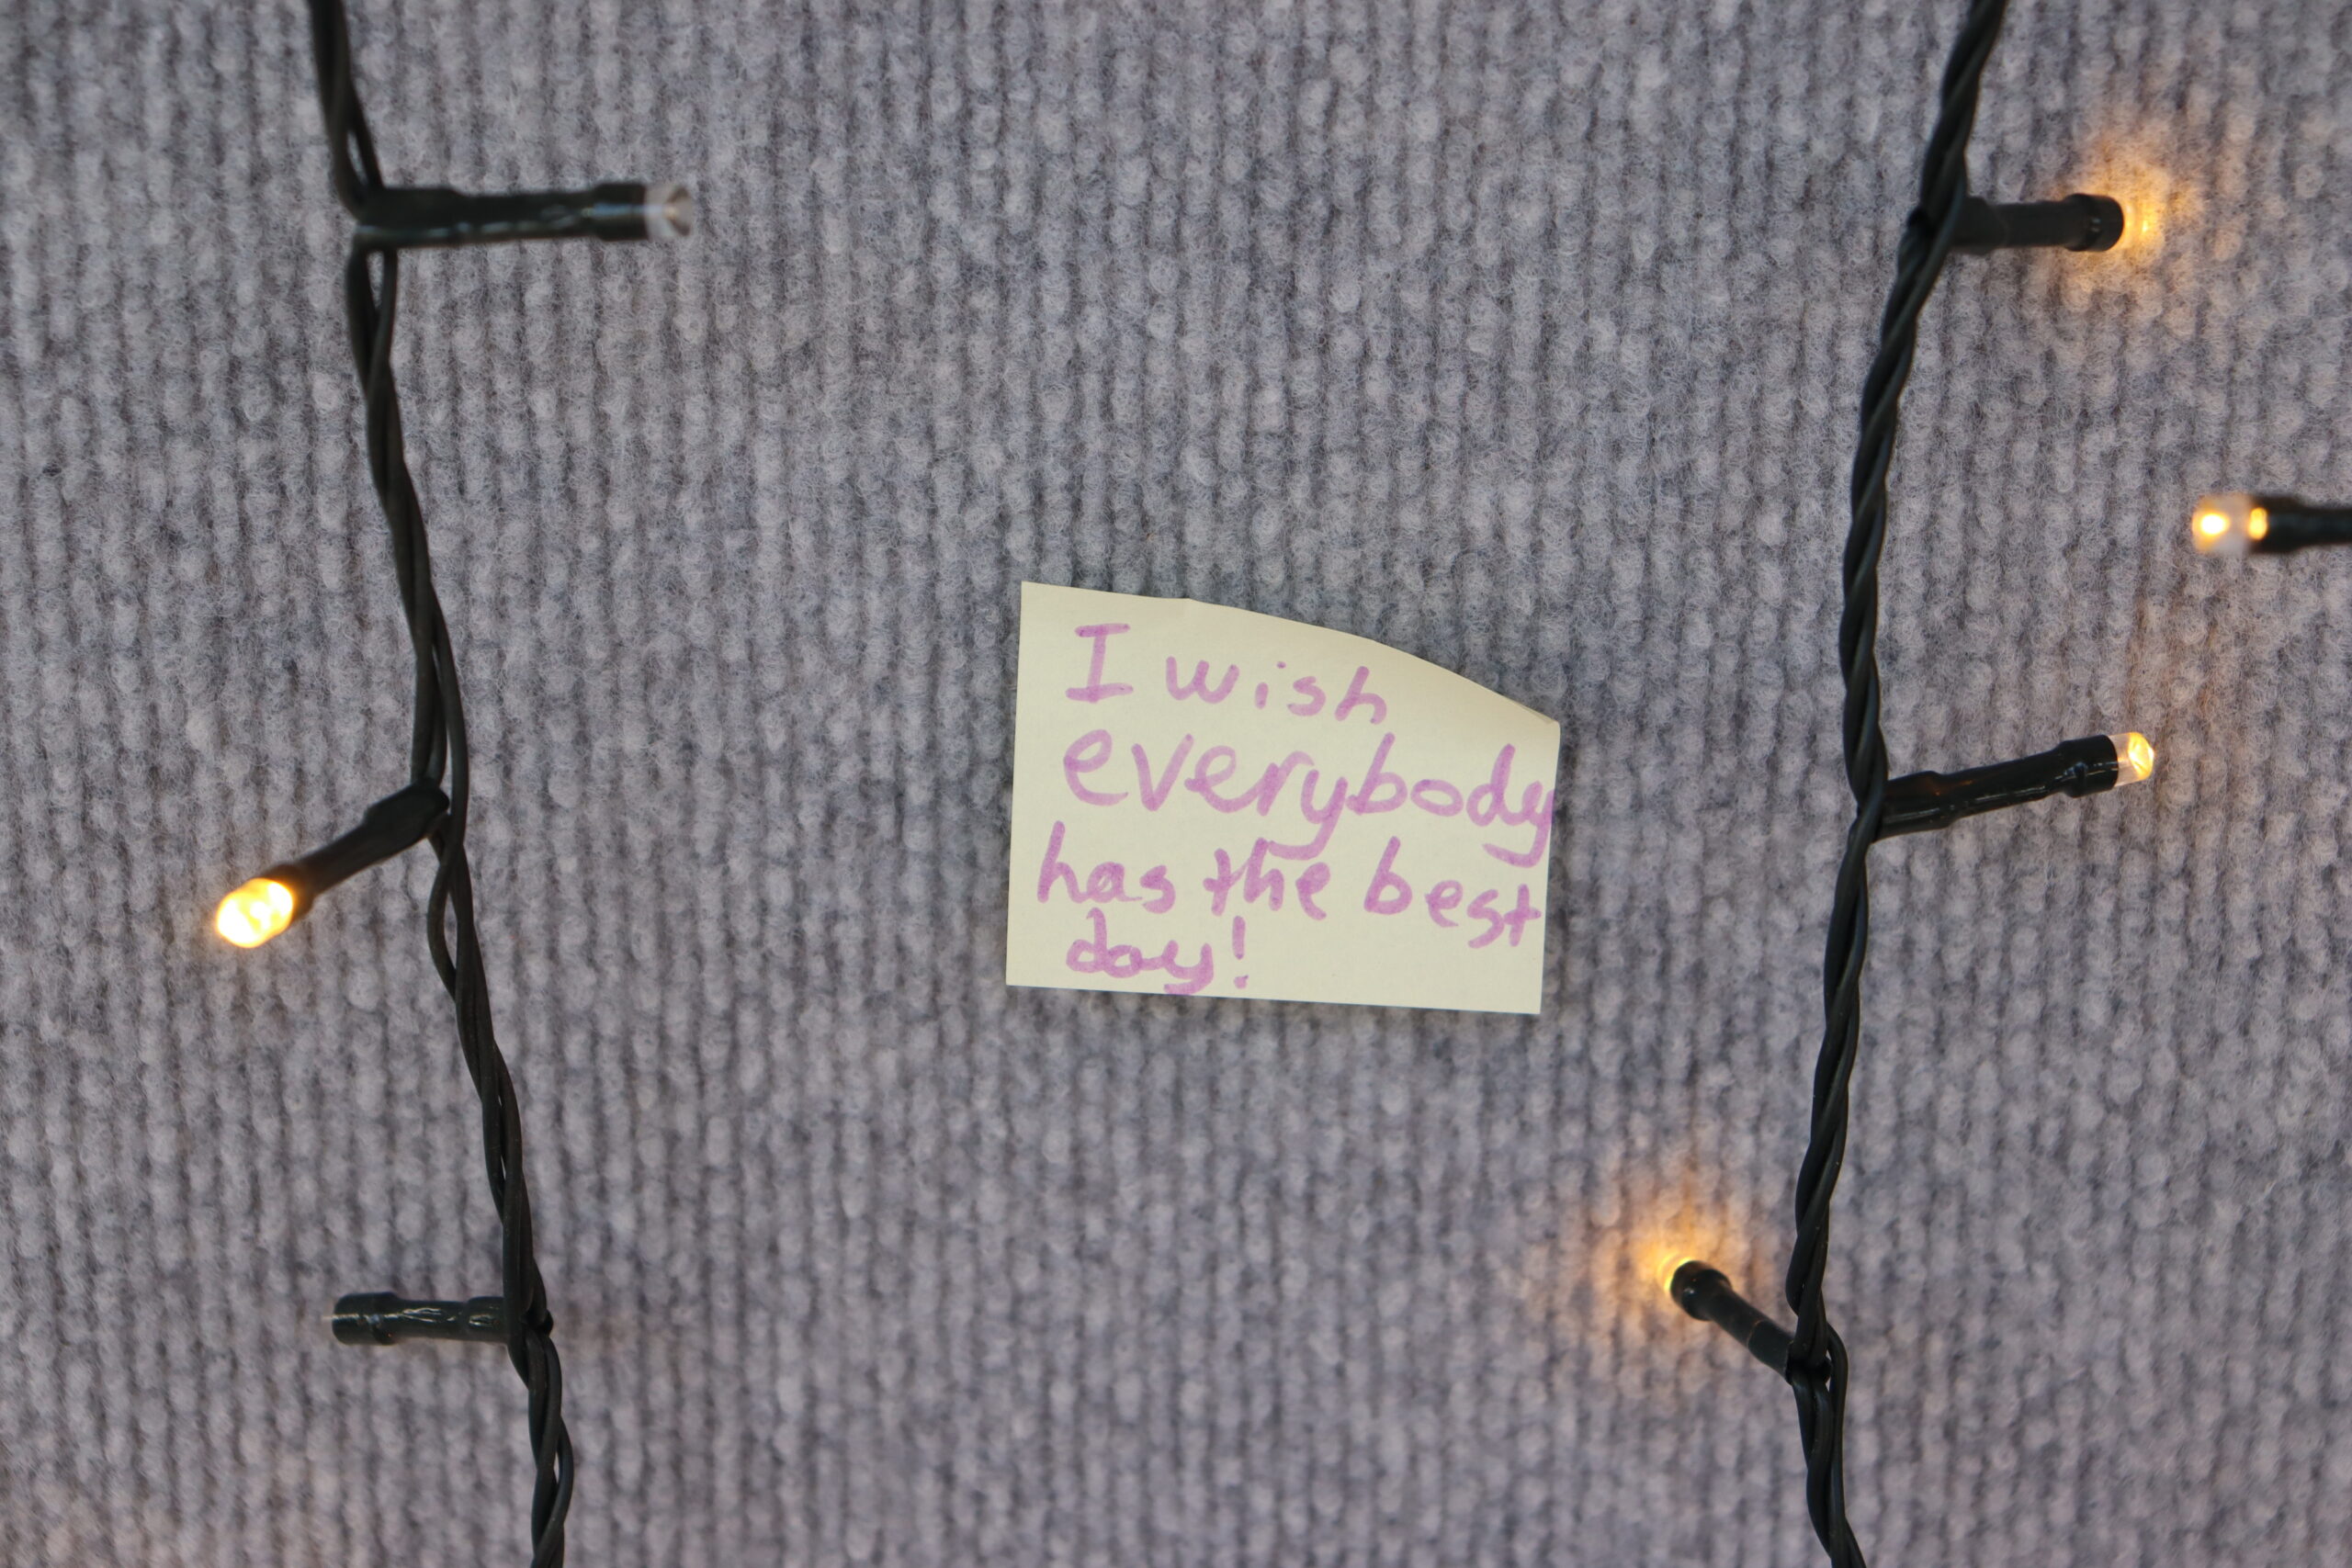 I wish
everybody
has the best
day!